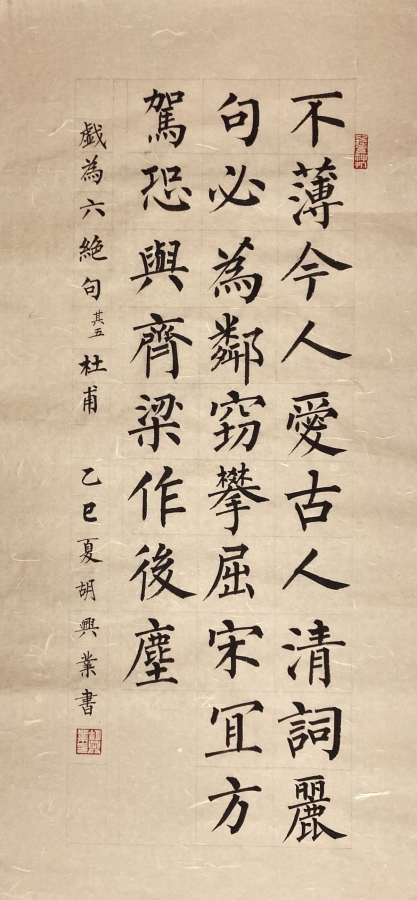 不薄今人愛古人清詞麗
句必為鄰竊攀屈宋宜方
駕恐與齊梁作後塵
戲為六絕句其五 杜甫 乙巳夏胡興業書